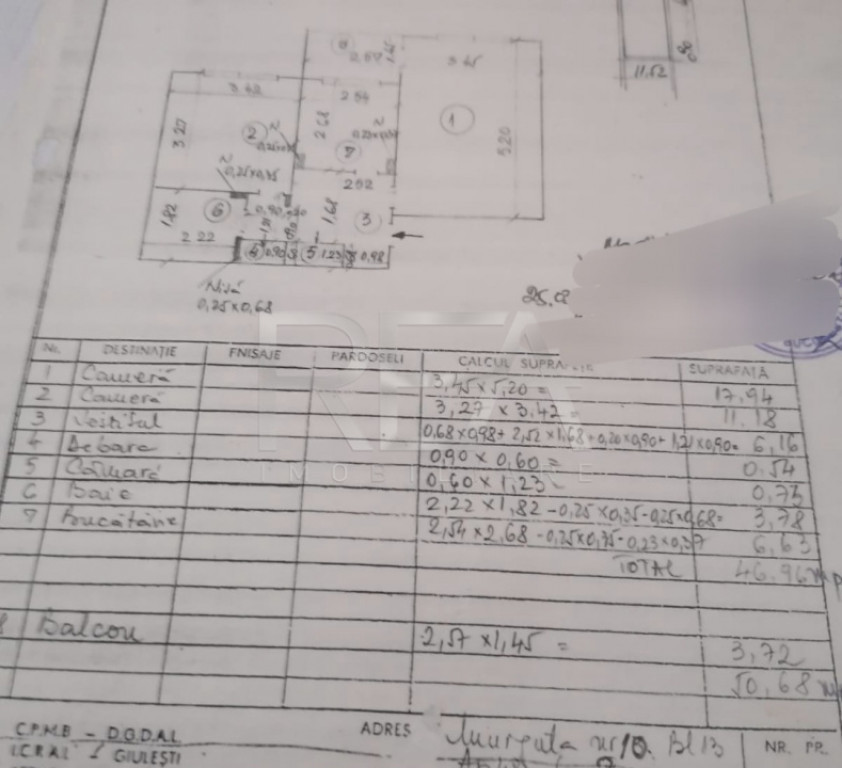 8
2.57
1.45
3.45
11.52
3.42
2.54
1
2
3.27
2.68
7
5.20
0,25x0,35
2.52
6
1.82
1.68
3
2 22
4
0.90
5
1.23
0.98
Nișă
0,25 x 0,68
25.0
RFA
IMOBILIARE
Nr. DESTINAȚIE FNISAJE PARDOSELI CALCUL SUPRAF SUPRAFAȚĂ
1 Cameră 3,45 x 5,20 = 17,94
2 Cameră 3,27 x 3,42 = 11.18
3 Vestibul 0,68 x 0,98 + 2,52 x 1,68 + 0,20 x 0,90 + 1,21 x 0,90 = 6,16
4 Debara 0,90 x 0,60 = 0.54
5 Cămară 0,60 x 1,23 0,73
6 Baie 2,22 x 1,82 - 0,25 x 0,35 - 0,25 x 0,68 = 3,78
7 Bucătărie 2,54 x 2,68 - 0,25 x 0,35 - 0,23 x 0,37 6,63
TOTAL 46.96 mp
8 Balcon 2,57 x 1,45 = 3,72
50,68 m
C.P.M.B - D.G.D.A.L ADRES nr 10. Bl 13 NR. PR.
I.C.R.A.L GIULEȘTI